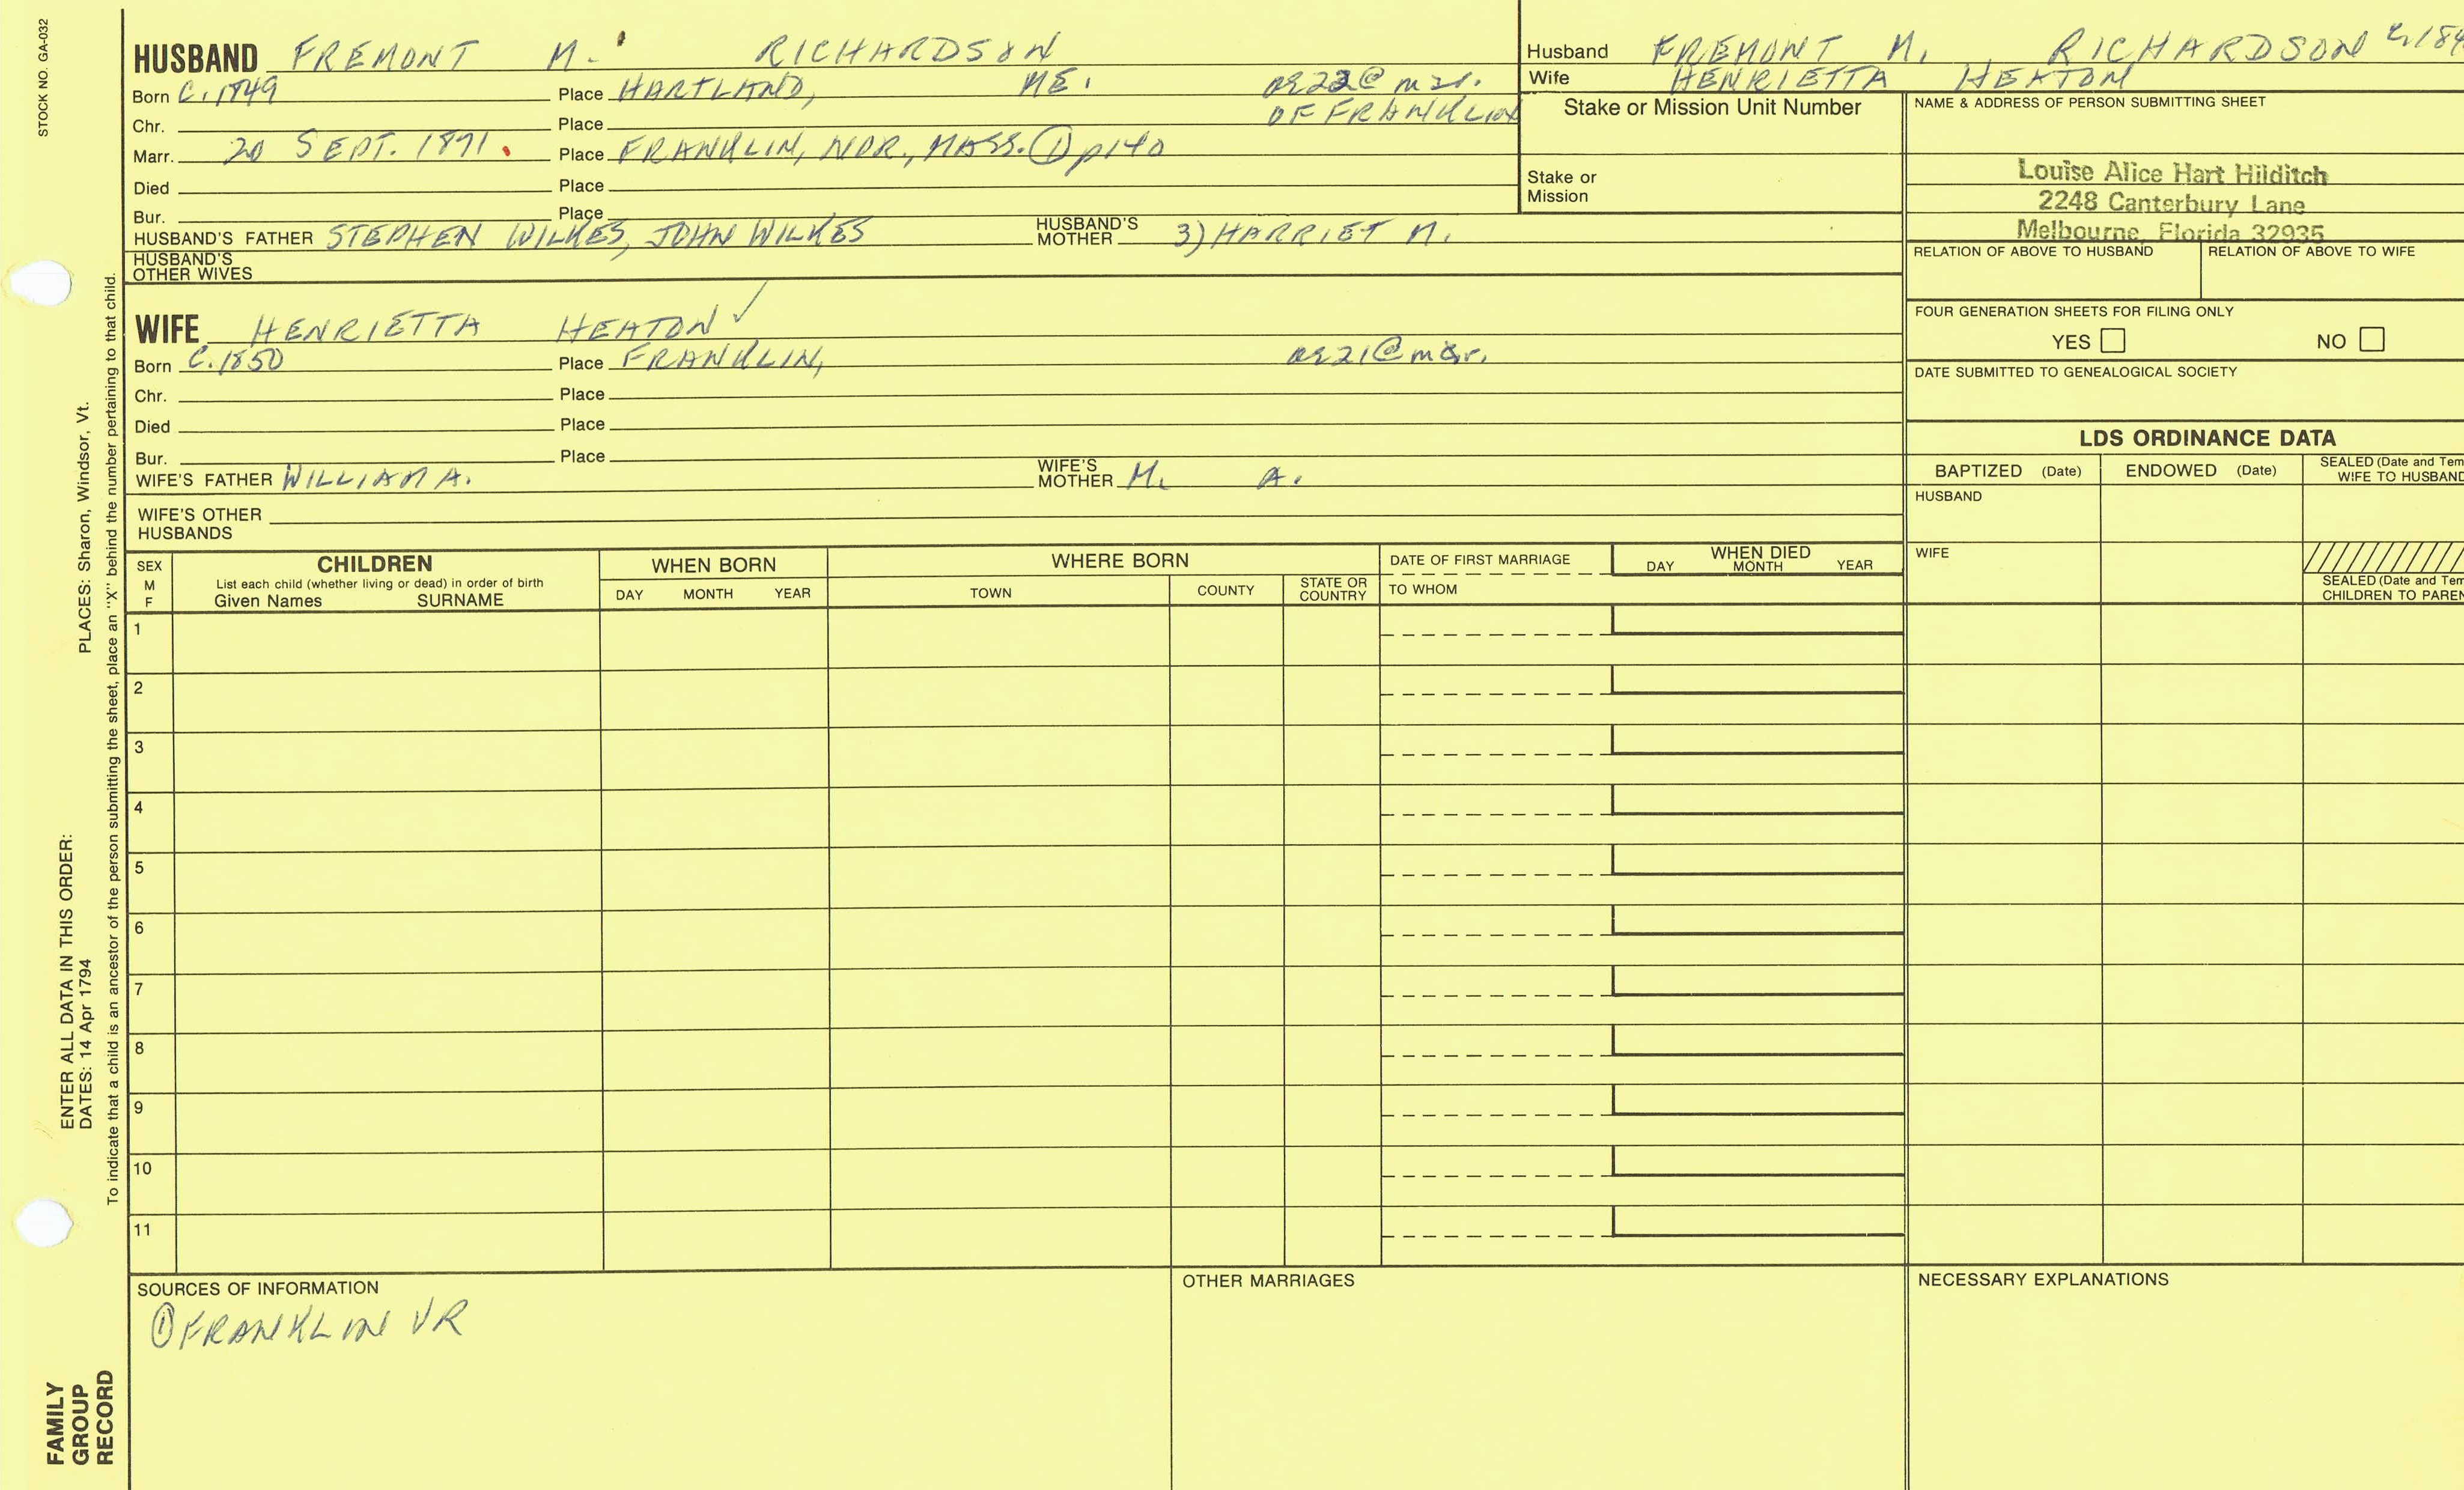 STOCK NO. GA-032
HUSBAND FREMONT M. RICHARDSON
Born C. 1849 Place HARTLAND, ME. ag 22 @ mar.
Chr. Place OF FRANKLIN
Marr. 20 SEPT. 1871. Place FRANKLIN, NOR., MASS. ① p140
Died Place
Bur. Place
HUSBAND'S FATHER STEPHEN WILKES, JOHN WILKES HUSBAND'S MOTHER 3) HARRIET M.
HUSBAND'S OTHER WIVES
WIFE HENRIETTA HEATON ✓
Born C. 1850 Place FRANKLIN, ag 21 @ mar.
Chr. Place
Died Place
Bur. Place
WIFE'S FATHER WILLIAM A. WIFE'S MOTHER M. A.
WIFE'S OTHER HUSBANDS
Husband FREMONT M. RICHARDSON
Wife HENRIETTA HEATON
Stake or Mission Unit Number
Stake or
Mission
NAME & ADDRESS OF PERSON SUBMITTING SHEET
Louise Alice Hart Hilditch
2248 Canterbury Lane
Melbourne, Florida 32935
RELATION OF ABOVE TO HUSBAND RELATION OF ABOVE TO WIFE
FOUR GENERATION SHEETS FOR FILING ONLY
YES NO
DATE SUBMITTED TO GENEALOGICAL SOCIETY
LDS ORDINANCE DATA
BAPTIZED (Date) ENDOWED (Date) SEALED (Date and Tem
WIFE TO HUSBAND
HUSBAND
WIFE
SEALED (Date and Tem
CHILDREN TO PAREN
SEX
M
F
CHILDREN
List each child (whether living or dead) in order of birth
Given Names SURNAME
WHEN BORN
DAY MONTH YEAR
WHERE BORN
TOWN COUNTY STATE OR COUNTRY
DATE OF FIRST MARRIAGE
TO WHOM
WHEN DIED
DAY MONTH YEAR
1
2
3
4
5
6
7
8
9
10
11
SOURCES OF INFORMATION
① FRANKLIN VR
OTHER MARRIAGES
NECESSARY EXPLANATIONS
ENTER ALL DATA IN THIS ORDER:
DATES: 14 Apr 1794 PLACES: Sharon, Windsor, Vt.
To indicate that a child is an ancestor of the person submitting the sheet, place an "X" behind the number pertaining to that child.
FAMILY
GROUP
RECORD